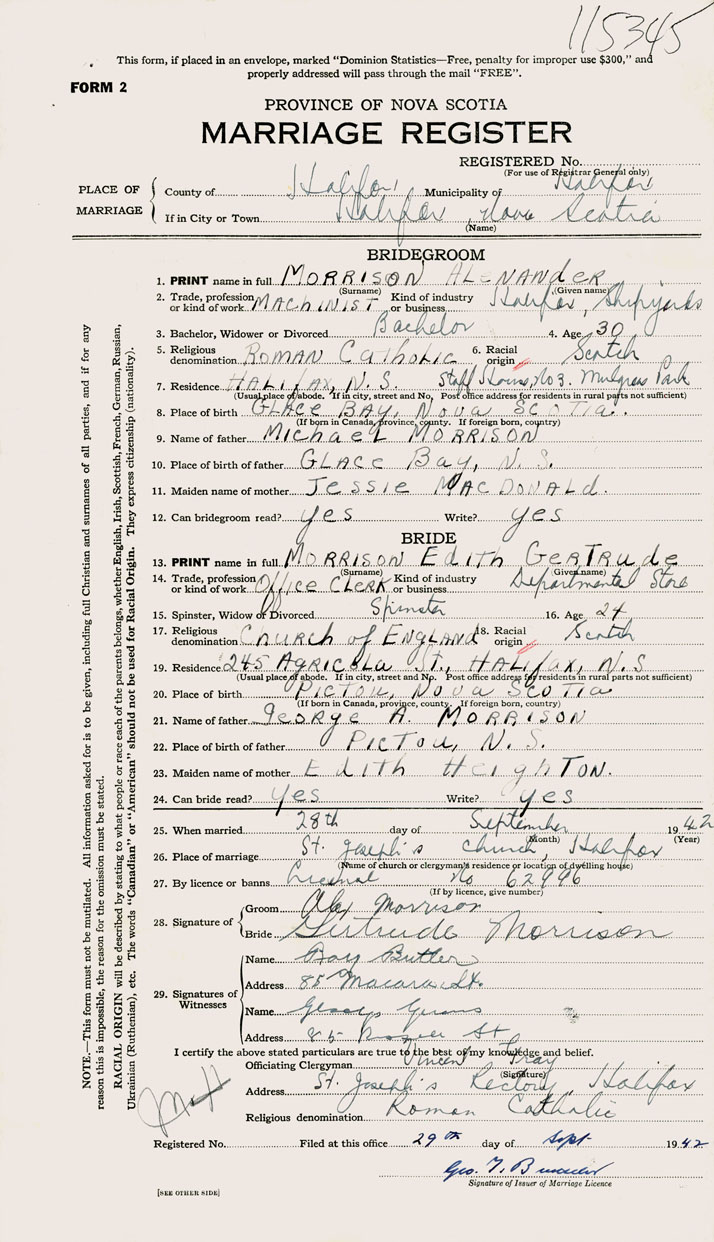 115345
This form, if placed in an envelope, marked "Dominion Statistics—Free, penalty for improper use $300," and
properly addressed will pass through the mail "FREE".
FORM 2
PROVINCE OF NOVA SCOTIA
MARRIAGE REGISTER
REGISTERED No.
(For use of Registrar General only)
PLACE OF MARRIAGE
County of Halifax Municipality of Halifax
If in City or Town Halifax, Nova Scotia
(Name)
BRIDEGROOM
1. PRINT name in full MORRISON ALEXANDER
(Surname) (Given name)
2. Trade, profession or kind of work MACHINIST Kind of industry or business Halifax Shipyards
3. Bachelor, Widower or Divorced Bachelor 4. Age 30
5. Religious denomination ROMAN CATHOLIC 6. Racial origin Scotch
7. Residence HALIFAX, N.S. Staff House, No 3. Mulgrave Park
(Usual place of abode. If in city, street and No. Post office address for residents in rural parts not sufficient)
8. Place of birth GLACE BAY, NOVA SCOTIA.
(If born in Canada, province, county. If foreign born, country)
9. Name of father MICHAEL MORRISON
10. Place of birth of father GLACE BAY, N.S.
11. Maiden name of mother JESSIE MACDONALD.
12. Can bridegroom read? yes Write? yes
BRIDE
13. PRINT name in full MORRISON EDITH GERTRUDE
(Surname) (Given name)
14. Trade, profession or kind of work Office CLERK Kind of industry or business Departmental Store
15. Spinster, Widow or Divorced Spinster 16. Age 24
17. Religious denomination CHURCH of ENGLAND 18. Racial origin Scotch
19. Residence 245 AGRICOLA ST., HALIFAX, N.S
(Usual place of abode. If in city, street and No. Post office address for residents in rural parts not sufficient)
20. Place of birth PICTOU, NOVA SCOTIA
(If born in Canada, province, county. If foreign born, country)
21. Name of father GEORGE A. MORRISON
22. Place of birth of father PICTOU, N.S.
23. Maiden name of mother EDITH HEIGHTON.
24. Can bride read? yes Write? yes
25. When married 28th day of September 1942
(Month) (Year)
26. Place of marriage St. Joseph's Church, Halifax
(Name of church or clergyman's residence or location of dwelling house)
27. By licence or banns No 62996
(If by licence, give number)
28. Signature of
Groom Alex Morrison
Bride Gertrude Morrison
29. Signatures of Witnesses
Name Butler
Address 85 Macara St.
Name Gladys
Address 85 St
I certify the above stated particulars are true to the best of my knowledge and belief.
Officiating Clergyman Vincent
(Signature)
Address St. Joseph's Rectory Halifax
Religious denomination Roman Catholic
Registered No. Filed at this office 29th day of Sept 1942
Geo.
Signature of Issuer of Marriage Licence
[SEE OTHER SIDE]
NOTE.—This form must not be mutilated. All information asked for is to be given, including full Christian and surnames of all parties, and if for any
reason this is impossible, the reason for the omission must be stated.
RACIAL ORIGIN will be described by stating to what people or race each of the parents belongs, whether English, Irish, Scottish, French, German, Russian,
Ukrainian (Ruthenian), etc. The words "Canadian" or "American" should not be used for Racial Origin. They express citizenship (nationality).